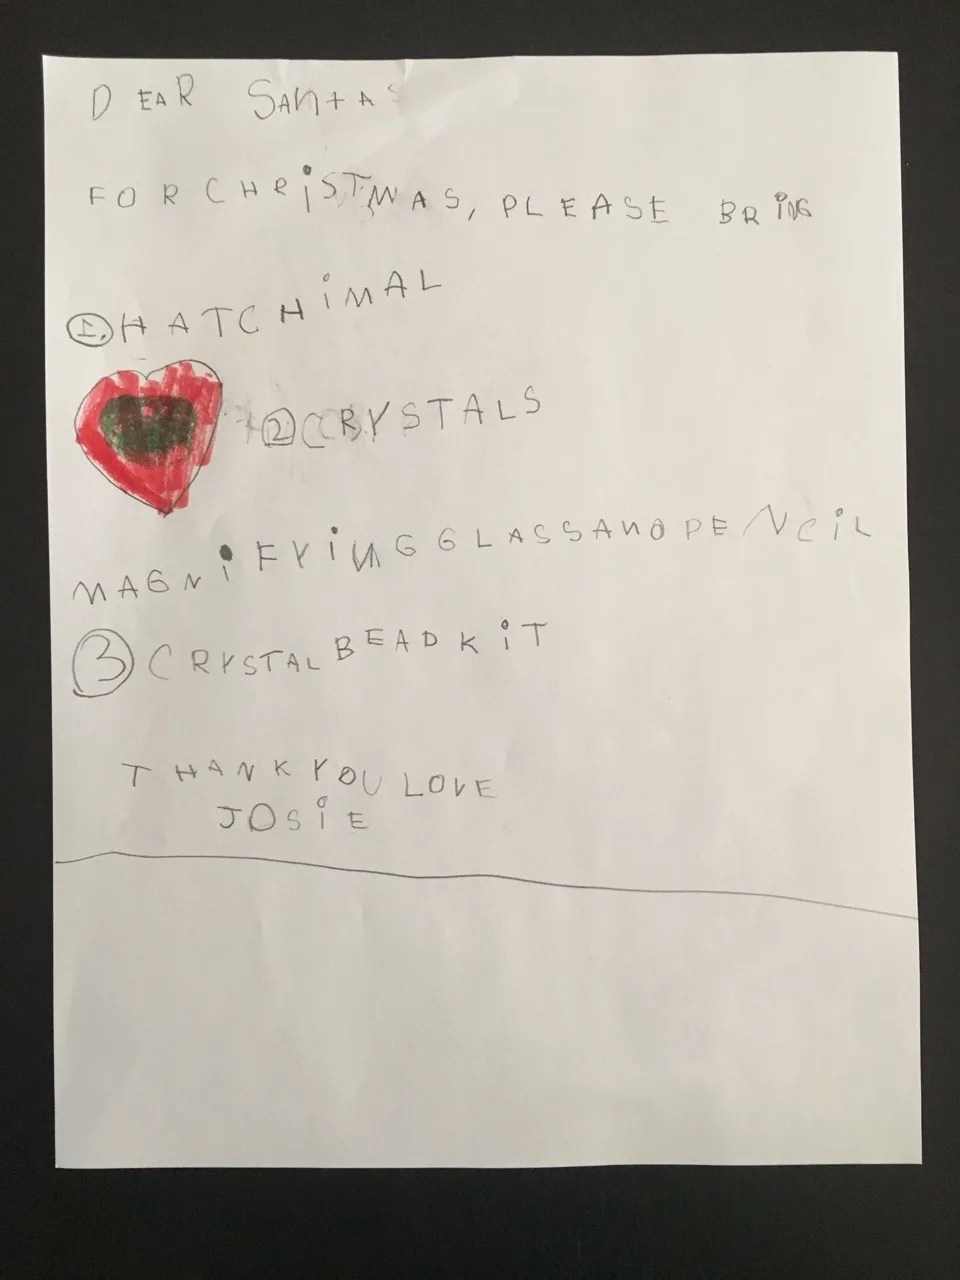 DEAR SANTA
FOR CHRiSTMAS, PLEASE BRiNG
1. HATCHiMAL
2 CRYSTALS
MAGNiFYiNG GLASS AND PENCiL
3 CRYSTAL BEAD KiT
THANK YOU LOVE
JOSiE